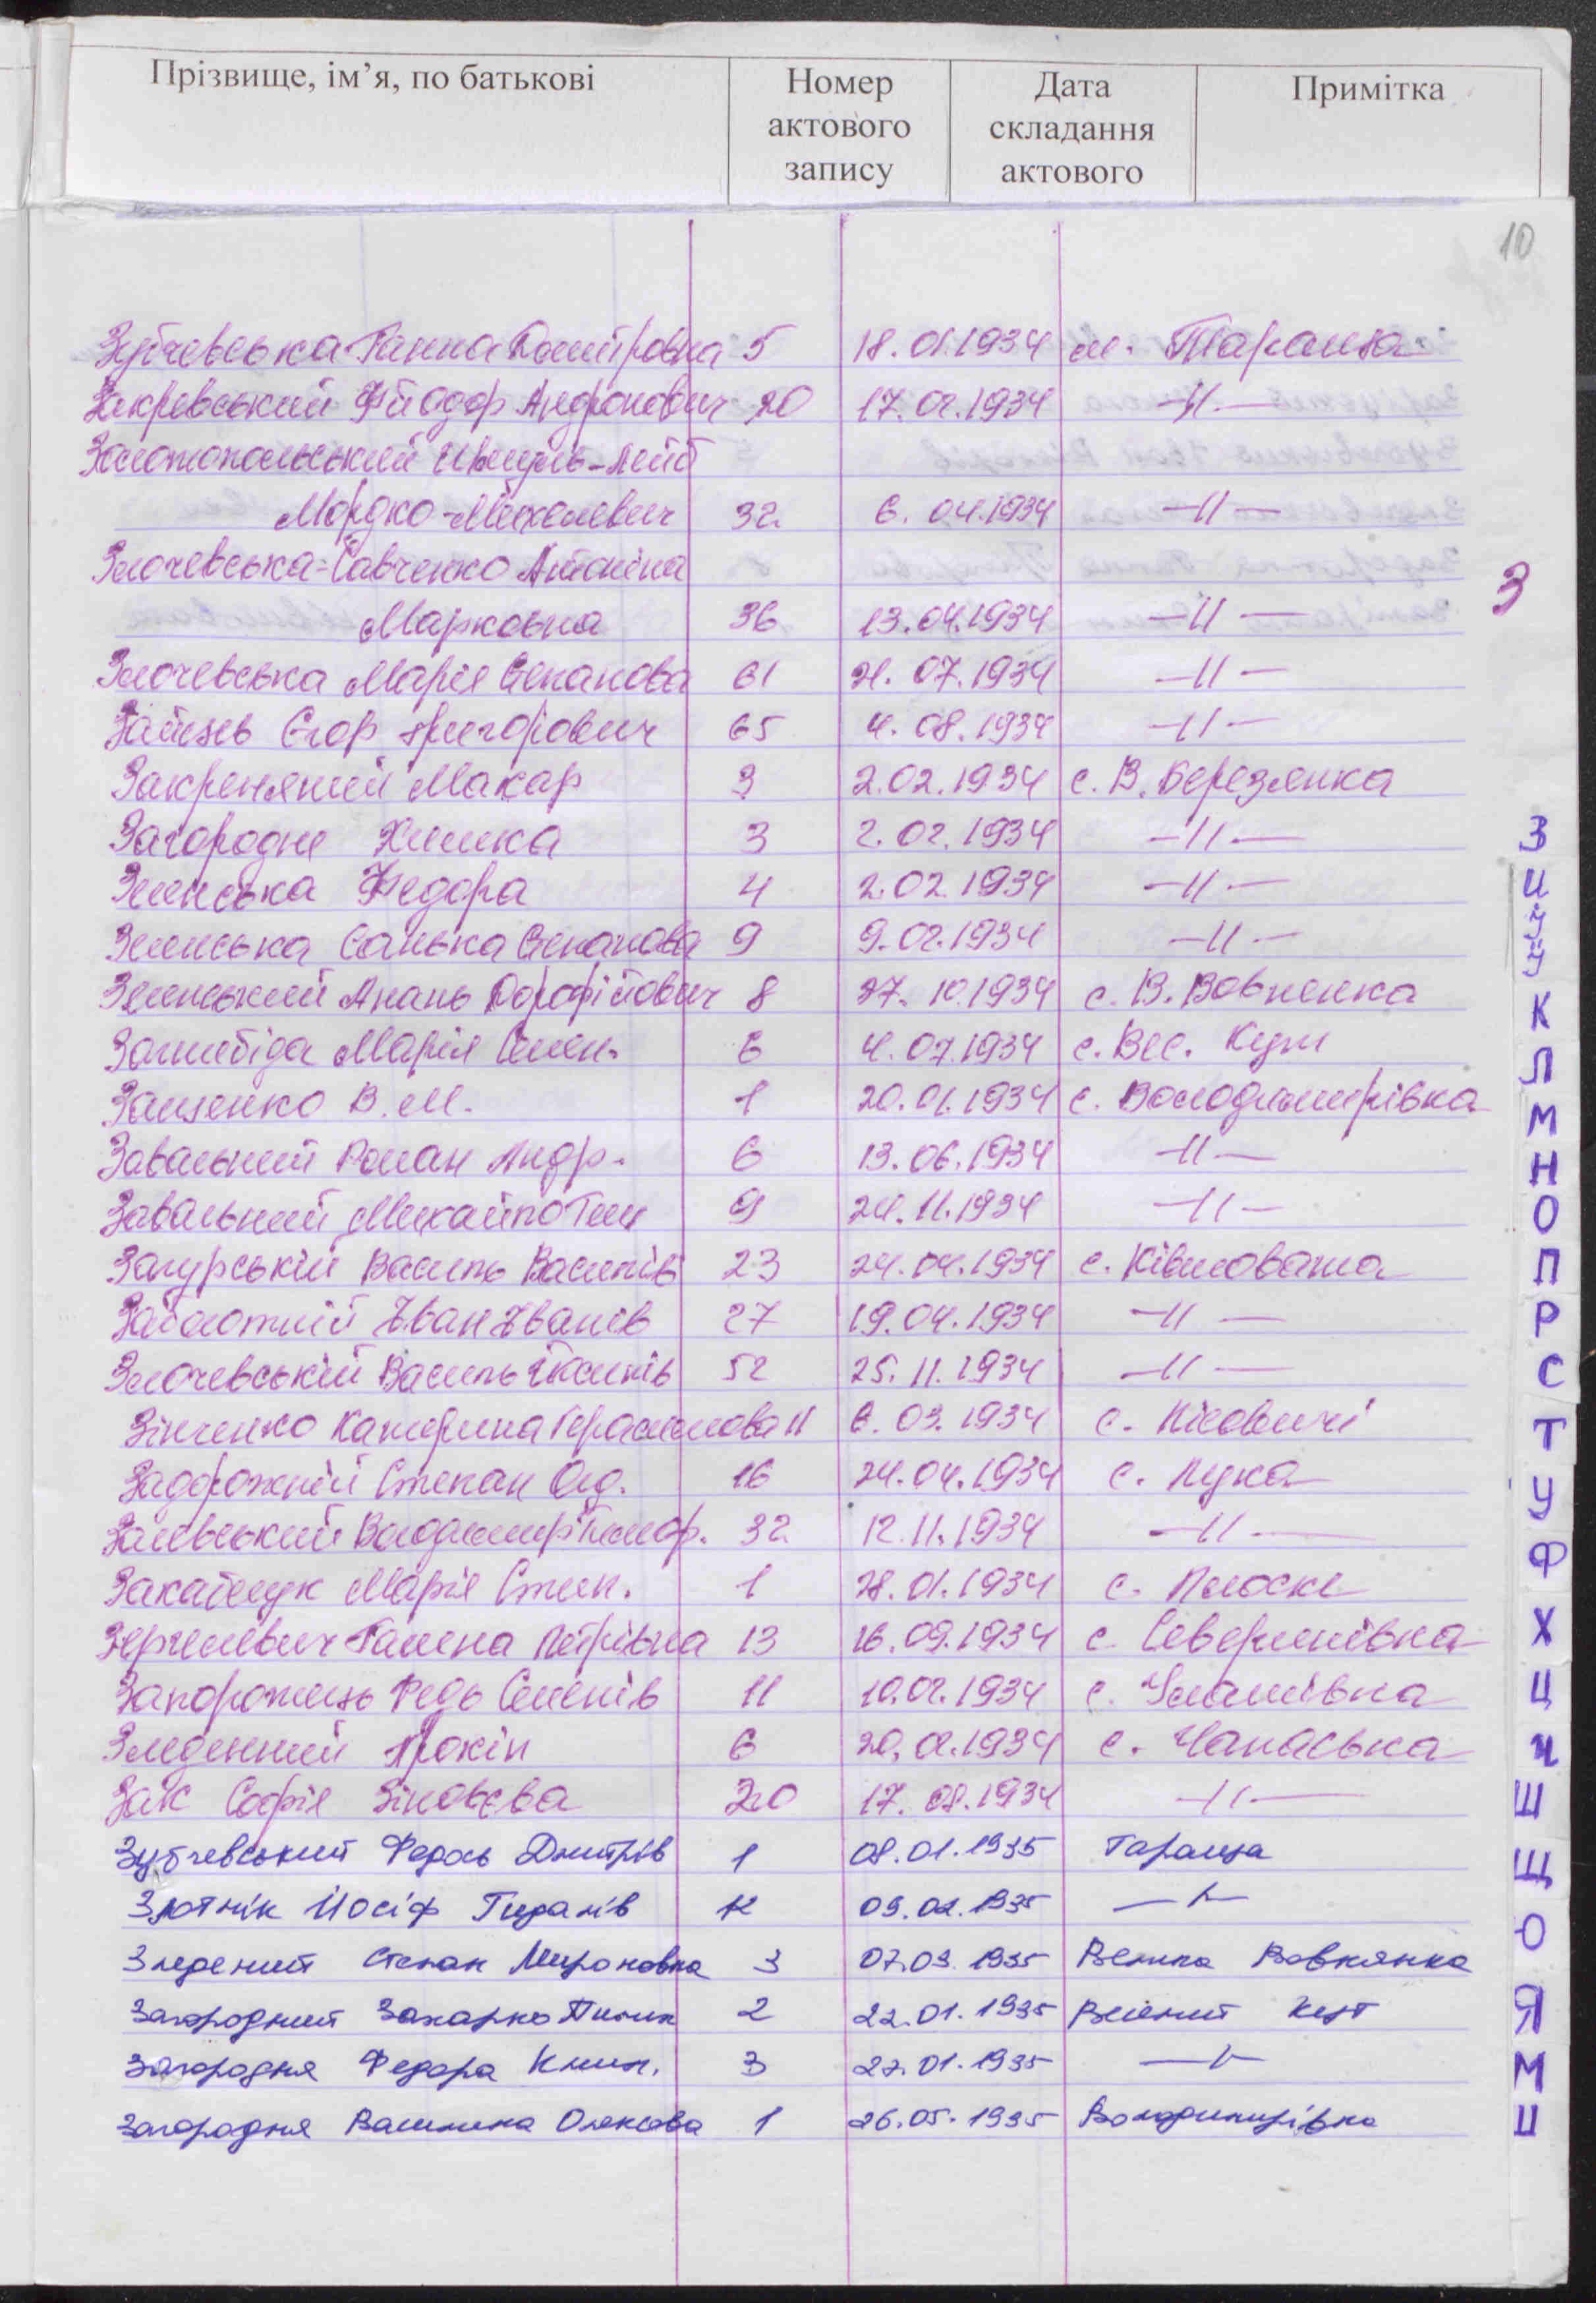 Прізвище, ім’я, по батькові
Номер актового запису
Дата складання актового
Примітка
10
Зубчевська Ганна Дмитровна 5 18.01.1934 м. Тараща
Закревський Фйодор Андронович 20 17.02.1934 —//—
Золотопольський Шмуль-Лейб
Мордко-Михелевич 32 6.04.1934 —//—
Злочевська-Савченко Антоніна
Марковна 36 13.04.1934 —//—
Злочевська Марія Степанова 61 21.07.1934 —//—
Заїнзь Єгор Григорович 65 4.08.1934 —//—
Закреняний Макар 3 2.02.1934 с. В. Березянка
Загородне Химка 3 2.02.1934 —//—
Зелінська Федора 4 2.02.1934 —//—
Зелинська Санька Степанова 9 9.02.1934 —//—
Зелинський Анань Дорофійович 8 27.10.1934 с. В. Вовненка
Загнибіда Марія Семен. 6 4.07.1934 с. Вес. Кут
Защенко В.М. 1 20.01.1934 с. Володимирівка
Завальний Роман Андр. 6 13.06.1934 —//—
Завальний Михайло Тим 9 24.11.1934 —//—
Загурській Василь Василів 23 24.04.1934 с.Ківшовата
Заболотній Іван Іванів 27 19.04.1934 —//—
Злочевській Василь Йосипів 52 25.11.1934 —//—
Зінченко Катерина Герасимова 11 6.03.1934 с. Лісовичі
Задорожній Степан Ол. 16 24.04.1934 с. Лука
Залевський Володимир Тимоф. 32 12.11.1934 —//—
Закаблук Марія Степ. 1 28.01.1934 с. Плоске
Зергелевич Галена Петрівна 13 16.09.1934 с. Северинівка
Запорожець Федь Семенів 11 10.02.1934 с. Улашівка
Зледенний Прокіп 6 20.02.1934 с. Чапаєвка
Зак Софія Зіновєва 20 17.08.1934 —//—
Зубчевський Федось Дмитрів 1 08.01.1935 Тараща
Злотнік Йосіф Гидалів 12 09.02.1935 —//—
Зледений Степан Мироновна 3 07.03.1935 Велика Вовнянка
Загородний Захарко Пилип 2 22.01.1935 Веселий Кут
Загородня Федора Клим. 3 22.01.1935 —//—
Загородня Василина Олексова 1 26.05.1935 Володимирівка
З
З
И
І
Ї
К
Л
М
Н
О
П
Р
С
Т
У
Ф
Х
Ц
Ч
Ш
Щ
Ю
Я
М
Ц